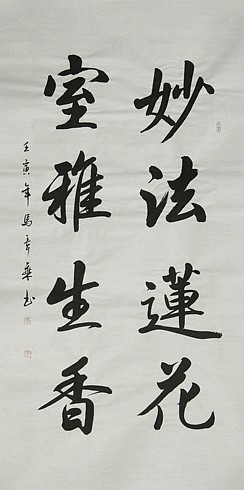 妙法蓮花
室雅生香
壬寅年馬彦華書